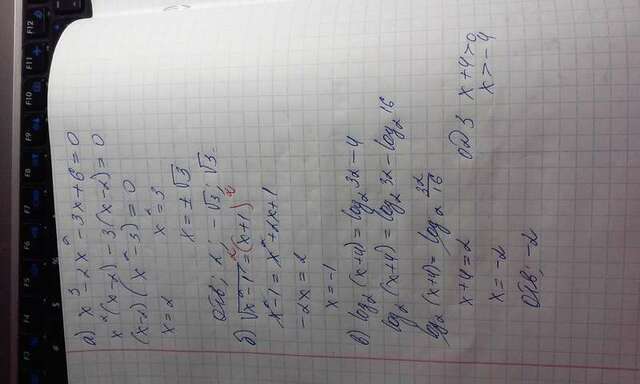 F3 F4 F5 F6 F7 F8 F9 F10 F11 F12
а) x³ - 2x² - 3x + 6 = 0
x²(x-2) - 3(x-2) = 0
(x-2)(x² - 3) = 0
x = 2 x² = 3
x = ± √3
отв; 2; -√3; √3.
б) √x² - 1² = (x+1)²
x² - 1 = x² + 2x + 1
-2x = 2
x = -1
в) log₂ (x+4) = log₂ 32 - 4
log₂ (x+4) = log₂ 32 - log₂ 16
log₂ (x+4) = log₂ 32/16
x + 4 = 2 ОДЗ x + 4 > 0
x = -2 x > -4
отв; -2